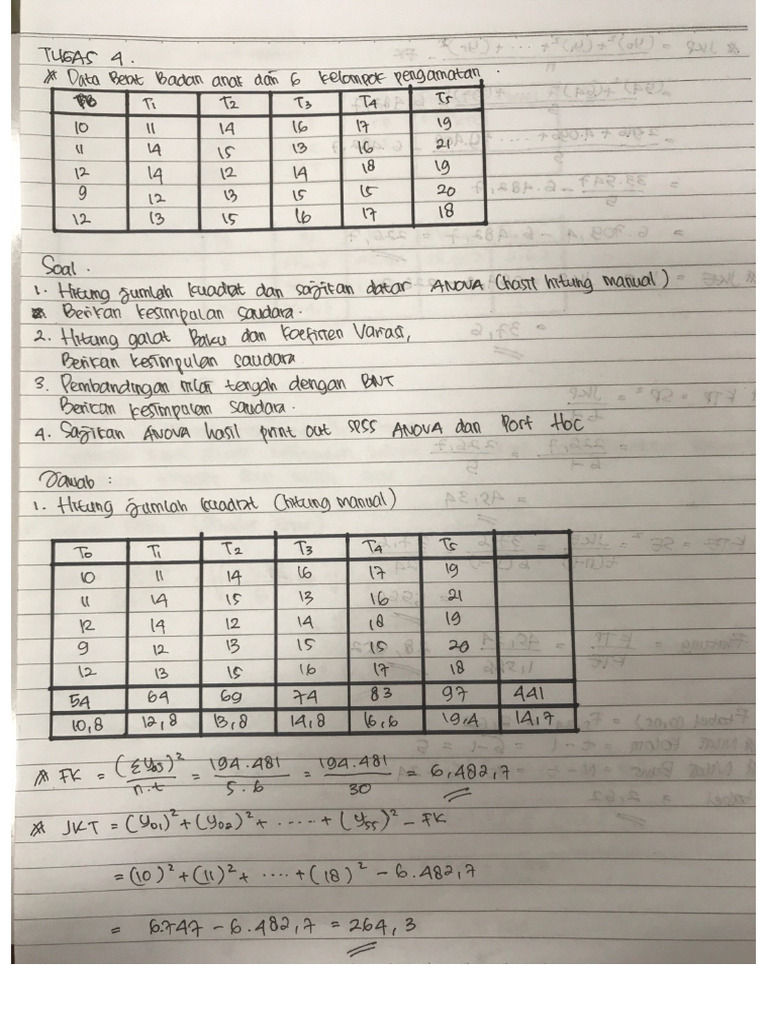 TUGAS 4.
* Data Berat Badan anak dari 6 kelompok pengamatan.
T0 T1 T2 T3 T4 T5
10 11 14 16 17 19
11 14 15 13 16 21
12 14 12 14 18 19
9 12 13 15 15 20
12 13 15 16 17 18
Soal.
1. Hitung jumlah kuadrat dan sajikan datar ANOVA (hasil hitung manual)
Berikan kesimpulan saudara.
2. Hitung galat Baku dan Koefisien Variasi,
Berikan kesimpulan saudara
3. Pembandingan nilai tengah dengan BNT
Berikan kesimpulan saudara.
4. Sajikan ANOVA hasil print out SPSS ANOVA dan Port Hoc
Jawab :
1. Hitung jumlah kuadrat (hitung manual)
T0 T1 T2 T3 T4 T5
10 11 14 16 17 19
11 14 15 13 16 21
12 14 12 14 18 19
9 12 13 15 15 20
12 13 15 16 17 18
54 64 69 74 83 97 441
10,8 12,8 13,8 14,8 16,6 19,4 14,7
* FK = (Σyij)² / n.t = 194.481 / 5.6 = 194.481 / 30 = 6,482,7
* JKT = (y01)² + (y02)² + ..... + (y55)² - FK
= (10)² + (11)² + .... + (18)² - 6.482,7
= 6.747 - 6.482,7 = 264,3